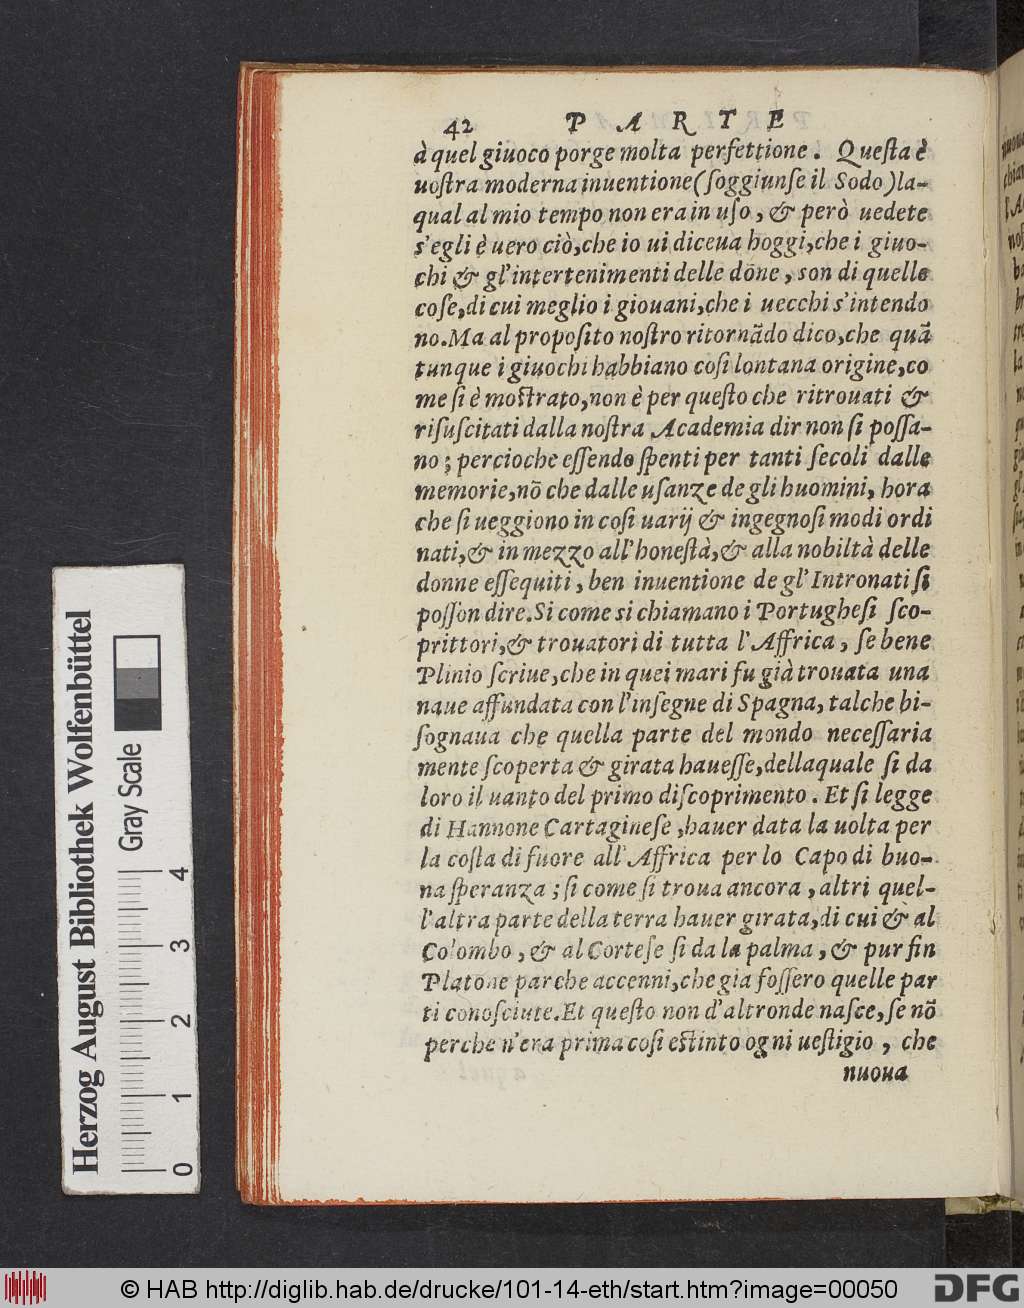 42 PARTE
à quel giuoco porge molta perfettione. Questa è
uostra moderna inuentione (soggiunse il Sodo) la-
qual al mio tempo non era in uso, & però uedete
s'egli è uero ciò, che io ui diceua hoggi, che i giuo-
chi & gl'intertenimenti delle dõne, son di quelle
cose, di cui meglio i giouani, che i uecchi s'intendo
no. Ma al proposito nostro ritornãdo dico, che quã
tunque i giuochi habbiano cosi lontana origine, co
me si è mostrato, non è per questo che ritrouati &
risuscitati dalla nostra Academia dir non si possa-
no; percioche essendo spenti per tanti secoli dalle
memorie, nõ che dalle usanze de gli huomini, hora
che si ueggiono in cosi uarij & ingegnosi modi ordi
nati, & in mezzo all'honestà, & alla nobiltà delle
donne essequiti, ben inuentione de gl'Intronati si
posson dire. Si come si chiamano i Portughesi sco-
prittori, & trouatori di tutta l'Affrica, se bene
Plinio scriue, che in quei mari fu già trouata una
naue affundata con l'insegne di Spagna, talche bi-
sognaua che quella parte del mondo necessaria
mente scoperta & girata hauesse, dellaquale si da
loro il uanto del primo discoprimento. Et si legge
di Hannone Cartaginese, hauer data la uolta per
la costa di fuore all'Affrica per lo Capo di buo-
na speranza; si come si troua ancora, altri quel-
l'altra parte della terra hauer girata, di cui & al
Colombo, & al Cortese si da la palma, & pur fin
Platone par che accenni, che gia fossero quelle par
ti conosciute. Et questo non d'altronde nasce, se nõ
perche n'era prima cosi estinto ogni uestigio, che
nuoua
Herzog August Bibliothek Wolfenbüttel
Gray Scale
0 1 2 3 4
© HAB http://diglib.hab.de/drucke/101-14-eth/start.htm?image=00050
DFG